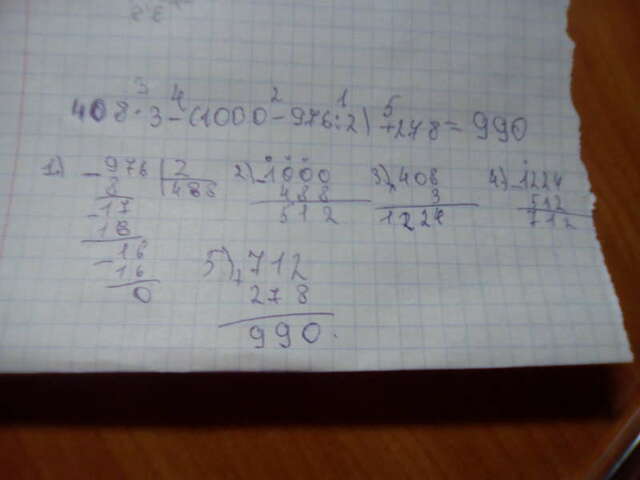 3 4 2 1 5
408·3-(1000-976:2)+278=990
1) -976 | 2 2) -1000 3) ×408 4) -1224
8 488 488 3 512
-17 512 1224 712
18
-16 5) +712
16 278
0 990.